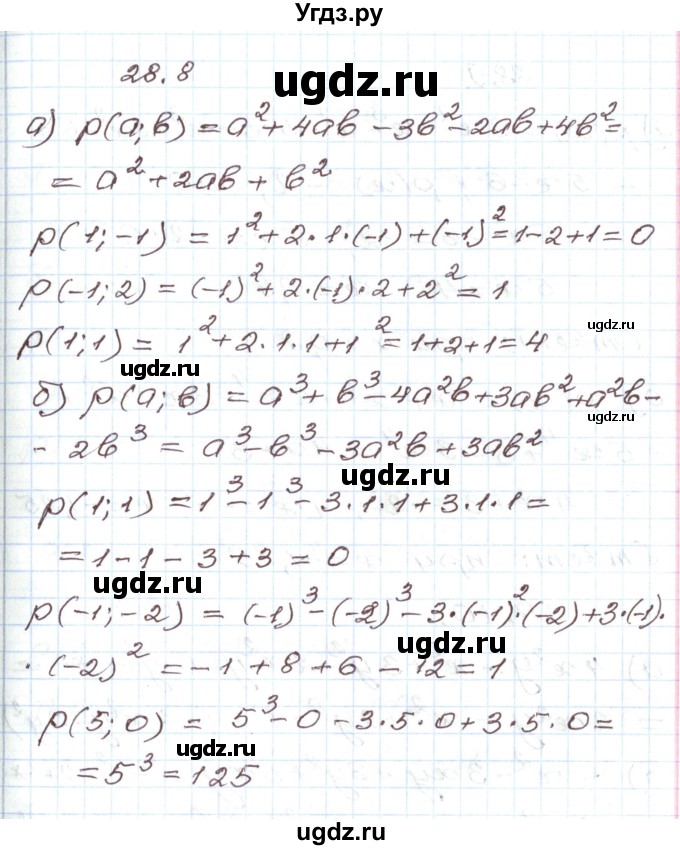 Угдз.ру
28.8
ugdz.ru
а) p(a;b) = a² + 4ab - 3b² - 2ab + 4b² =
= a² + 2ab + b²
p(1;-1) = 1² + 2·1·(-1) + (-1)² = 1 - 2 + 1 = 0
p(-1;2) = (-1)² + 2·(-1)·2 + 2² = 1
ugdz.ru
p(1;1) = 1² + 2·1·1 + 1² = 1 + 2 + 1 = 4
ugdz.ru
б) p(a;b) = a³ + b³ - 4a²b + 3ab² + a²b -
ugdz.ru
- 2b³ = a³ - b³ - 3a²b + 3ab²
ugdz.ru
p(1;1) = 1³ - 1³ - 3·1·1 + 3·1·1 =
= 1 - 1 - 3 + 3 = 0
ugdz.ru
p(-1;-2) = (-1)³ - (-2)³ - 3·(-1)²·(-2) + 3·(-1)·
ugdz.ru
· (-2)² = -1 + 8 + 6 - 12 = 1
p(5;0) = 5³ - 0 - 3·5·0 + 3·5·0 =
ugdz.ru
= 5³ = 125
ugdz.ru
ugdz.ru